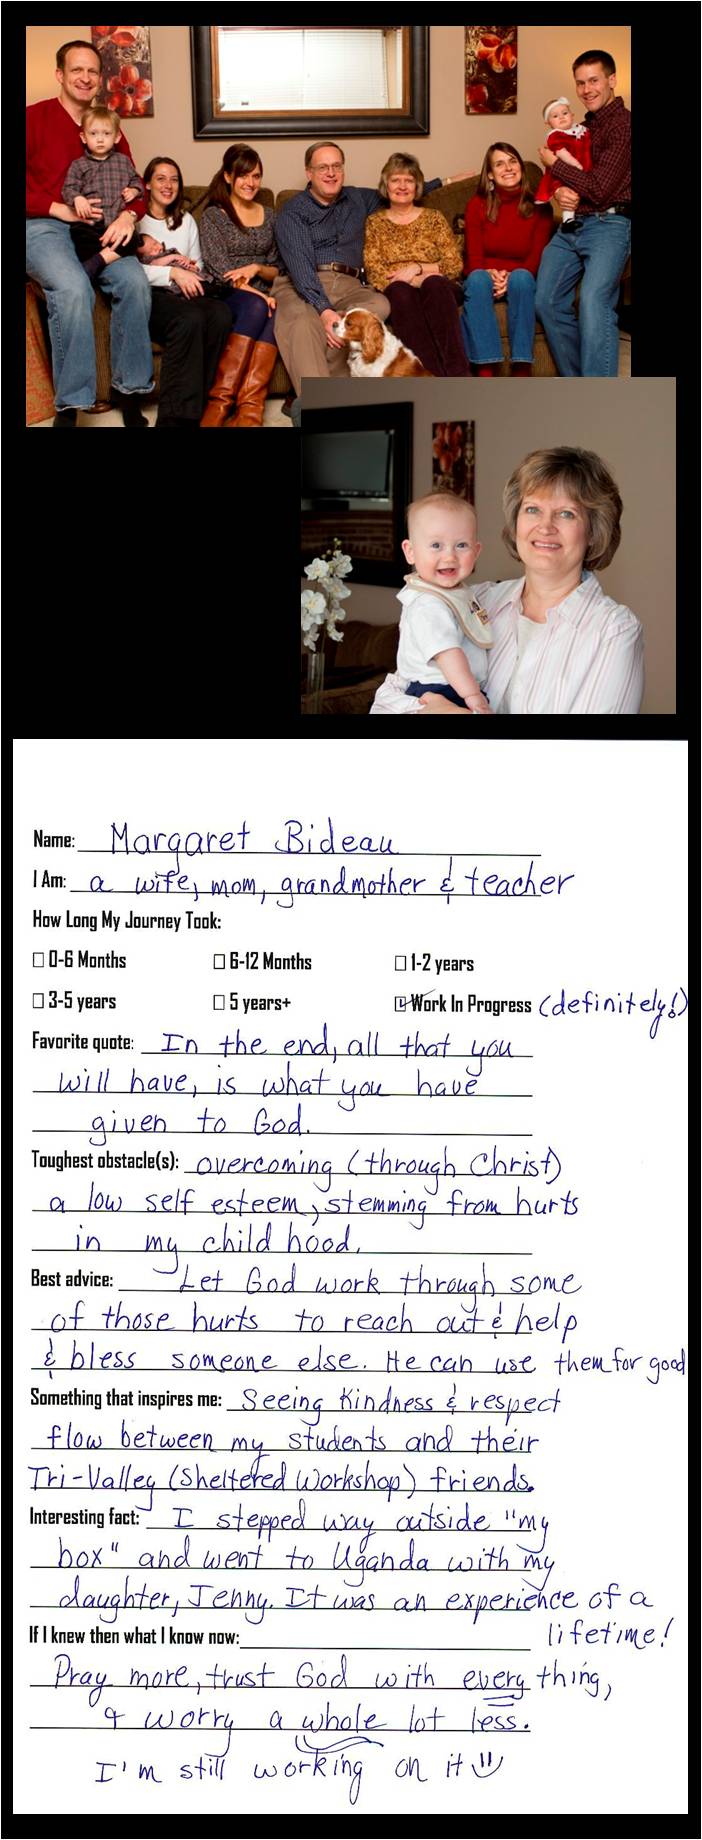 Name: Margaret Bideau
I Am: a wife, mom, grandmother & teacher
How Long My Journey Took:
☐ 0-6 Months ☐ 6-12 Months ☐ 1-2 years
☐ 3-5 years ☐ 5 years+ ☑ Work In Progress (definitely!)
Favorite quote: In the end, all that you
will have, is what you have
given to God.
Toughest obstacle(s): overcoming (through Christ)
a low self esteem, stemming from hurts
in my child hood.
Best advice: Let God work through some
of those hurts to reach out & help
& bless someone else. He can use them for good
Something that inspires me: Seeing Kindness & respect
flow between my students and their
Tri-Valley (Sheltered Workshop) friends.
Interesting fact: I stepped way outside "my
box" and went to Uganda with my
daughter, Jenny. It was an experience of a
lifetime!
If I knew then what I know now:
Pray more, trust God with every thing,
& worry a whole lot less.
I'm still working on it